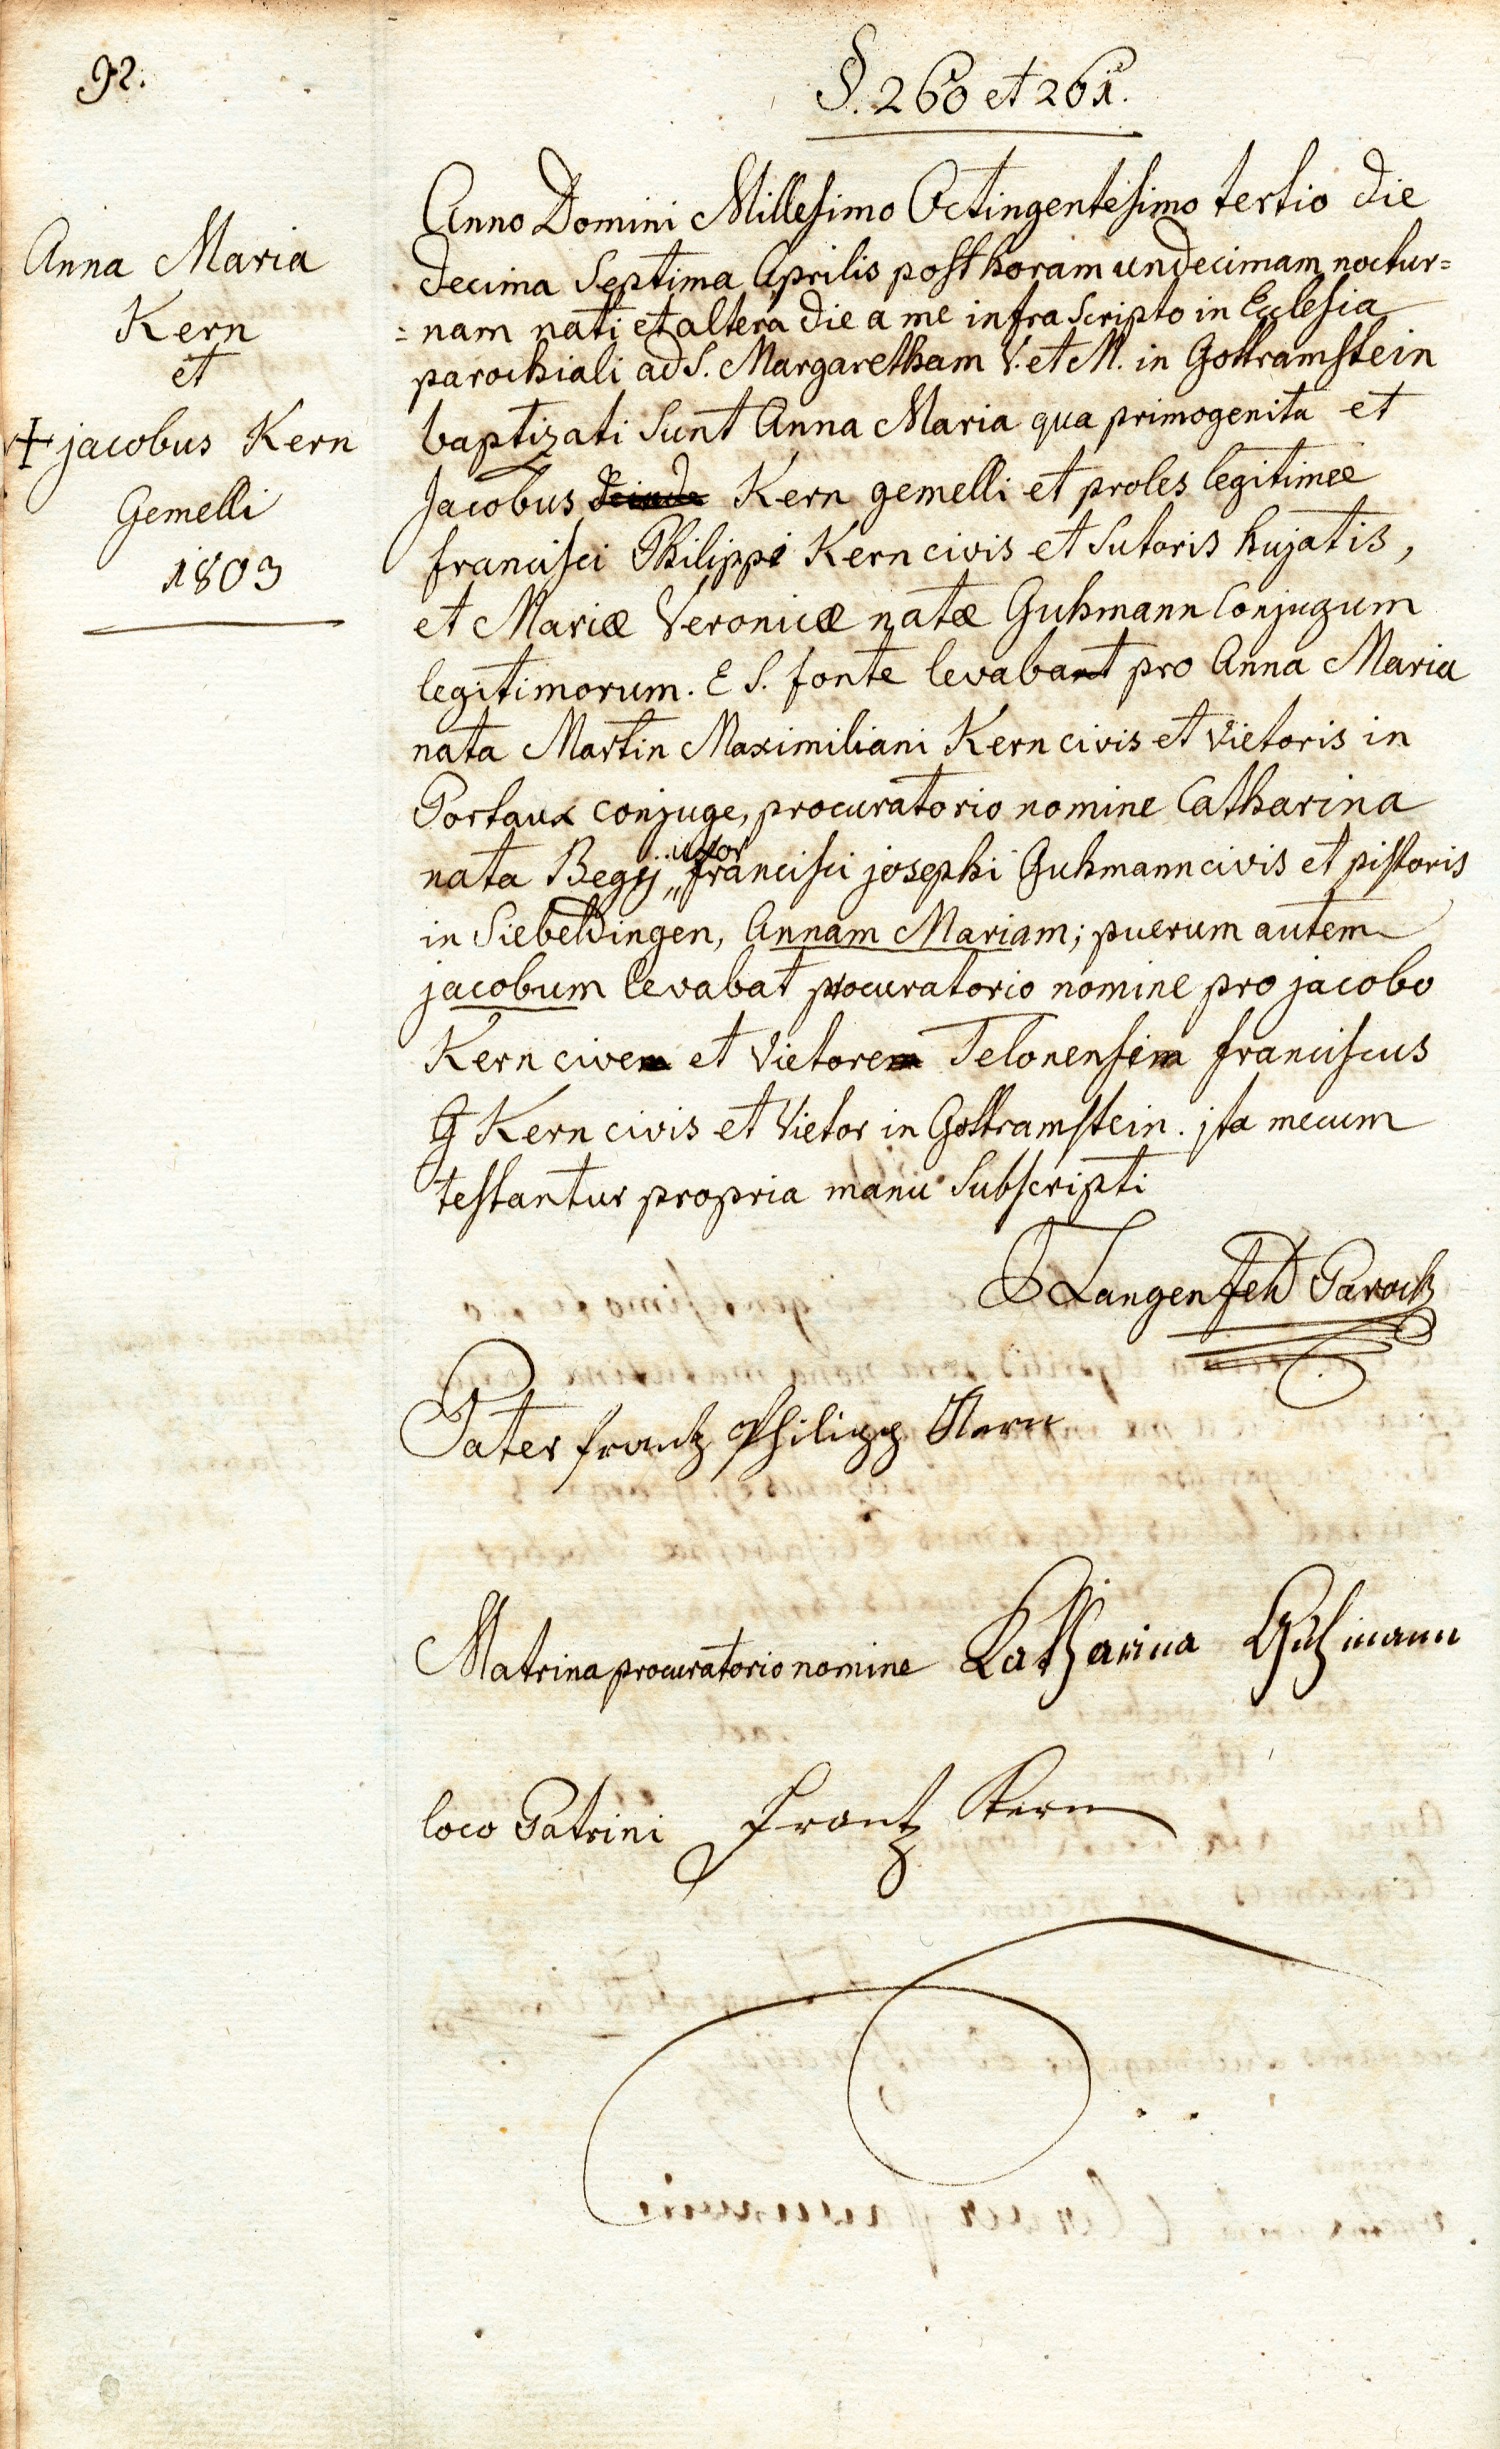 92.
§. 260 et 261.
Anna Maria
Kern
et
+ jacobus Kern
Gemelli
1803
Anno Domini Millesimo Octingentesimo tertio die
decima Septima Aprilis post horam undecimam noctur=
=nam nati et altera die a me infra Scripto in Ecclesia
parochiali ad S. Margaretham V. et M. in Gottramstein
baptizati Sunt Anna Maria qua primogenita et
Jacobus Kern gemelli et proles legitimæ
francisci Philippi Kern civis et Sutoris hujatis,
et Mariæ Veronicæ natæ Guhmann Conjugum
legitimorum. E S. fonte levabat pro Anna Maria
nata Martin Maximiliani Kern civis et Vietoris in
conjuge, procuratorio nomine Catharina
nata Begÿ uxor francisci josephi Guhmann civis et pistoris
in Siebeldingen, Annam Mariam; puerum autem
jacobum levabat procuratorio nomine pro jacobo
Kern cive et Vietore Telonensi franciscus
Kern civis et Vietor in Gottramstein. jta mecum
testantur propria manu Subscripti
Langenfeld Paroch
Pater frantz Philipp Kern
Matrina procuratorio nomine Katharina Guhmann
loco Patrini Frantz Kern